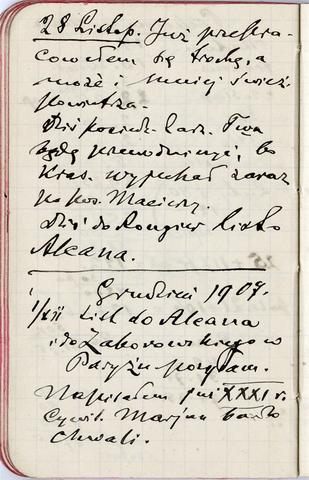 28 Listop. Już przepra-
cowałem się trochę, a
może i mniej śwież.
powietrza.
Dziś posiedz. Tow.
będę przewodniczyć, bo
Kras. wyjechał zaraz
po pos. Macierzy.
Dziś do Rongier
Alcana.
Grudzień 1907.
1/XII List do Alcana
i do Zaborowskiego w
Paryżu posyłam.
Napisałem już XXXI r.
Cywil. Marjan bardo
chwali.